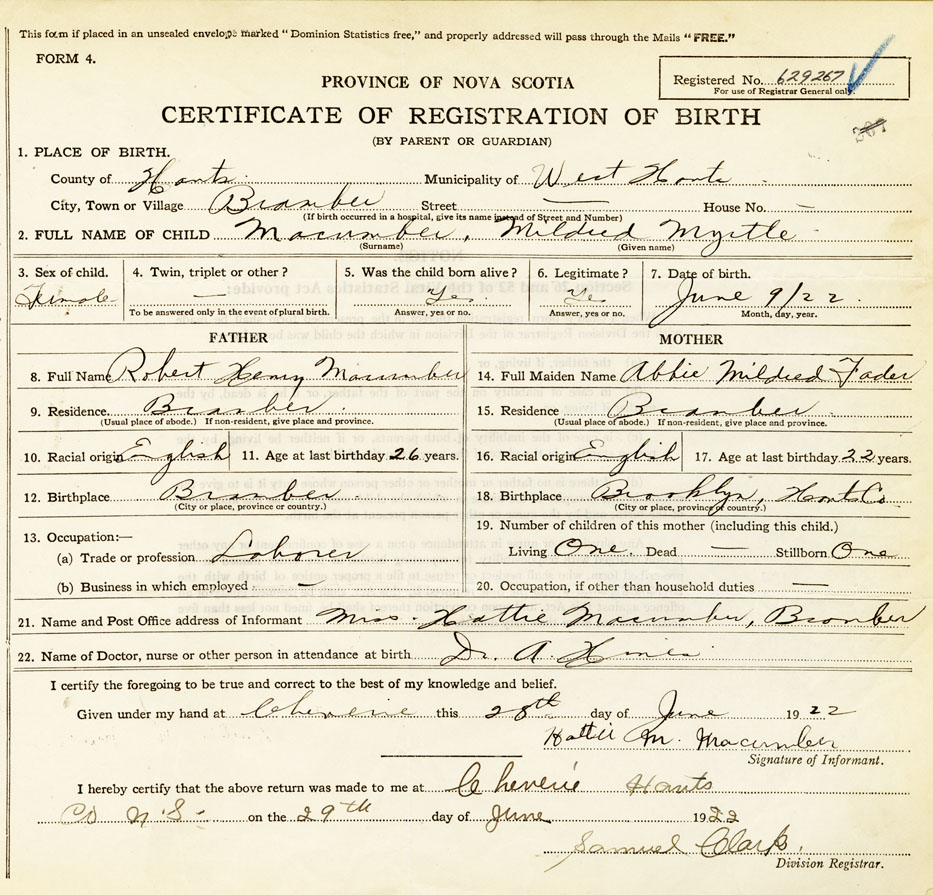 This form if placed in an unsealed envelope marked "Dominion Statistics free," and properly addressed will pass through the Mails "FREE."
FORM 4.
Registered No. 629267
For use of Registrar General only.
PROVINCE OF NOVA SCOTIA
CERTIFICATE OF REGISTRATION OF BIRTH
(BY PARENT OR GUARDIAN)
1. PLACE OF BIRTH.
County of Hants Municipality of West Hants
City, Town or Village Bramber Street — House No. —
(If birth occurred in a hospital, give its name instead of Street and Number)
2. FULL NAME OF CHILD Macumber, Mildred Myrtle
(Surname) (Given name)
3. Sex of child. 4. Twin, triplet or other? 5. Was the child born alive? 6. Legitimate? 7. Date of birth.
Female — Yes Yes June 9/22
To be answered only in the event of plural birth. Answer, yes or no. Answer, yes or no. Month, day, year.
FATHER MOTHER
8. Full Name Robert Henry Macumber 14. Full Maiden Name Abbie Mildred Fader
9. Residence. Bramber 15. Residence Bramber
(Usual place of abode.) If non-resident, give place and province. (Usual place of abode.) If non-resident, give place and province.
10. Racial origin English 11. Age at last birthday 26 years. 16. Racial origin English 17. Age at last birthday 22 years.
12. Birthplace Bramber 18. Birthplace Brooklyn, Hants Co
(City or place, province or country.) (City or place, province or country.)
13. Occupation:— 19. Number of children of this mother (including this child.)
(a) Trade or profession Laborer Living One. Dead — Stillborn One
(b) Business in which employed — 20. Occupation, if other than household duties —
21. Name and Post Office address of Informant Miss. Hattie Macumber, Bramber
22. Name of Doctor, nurse or other person in attendance at birth Dr. A.
I certify the foregoing to be true and correct to the best of my knowledge and belief.
Given under my hand at Cheverie this 28th day of June 1922
Hattie M. Macumber
Signature of Informant.
I hereby certify that the above return was made to me at Cheverie Hants
Co N.S. on the 29th day of June 1922
Samuel Clark.
Division Registrar.